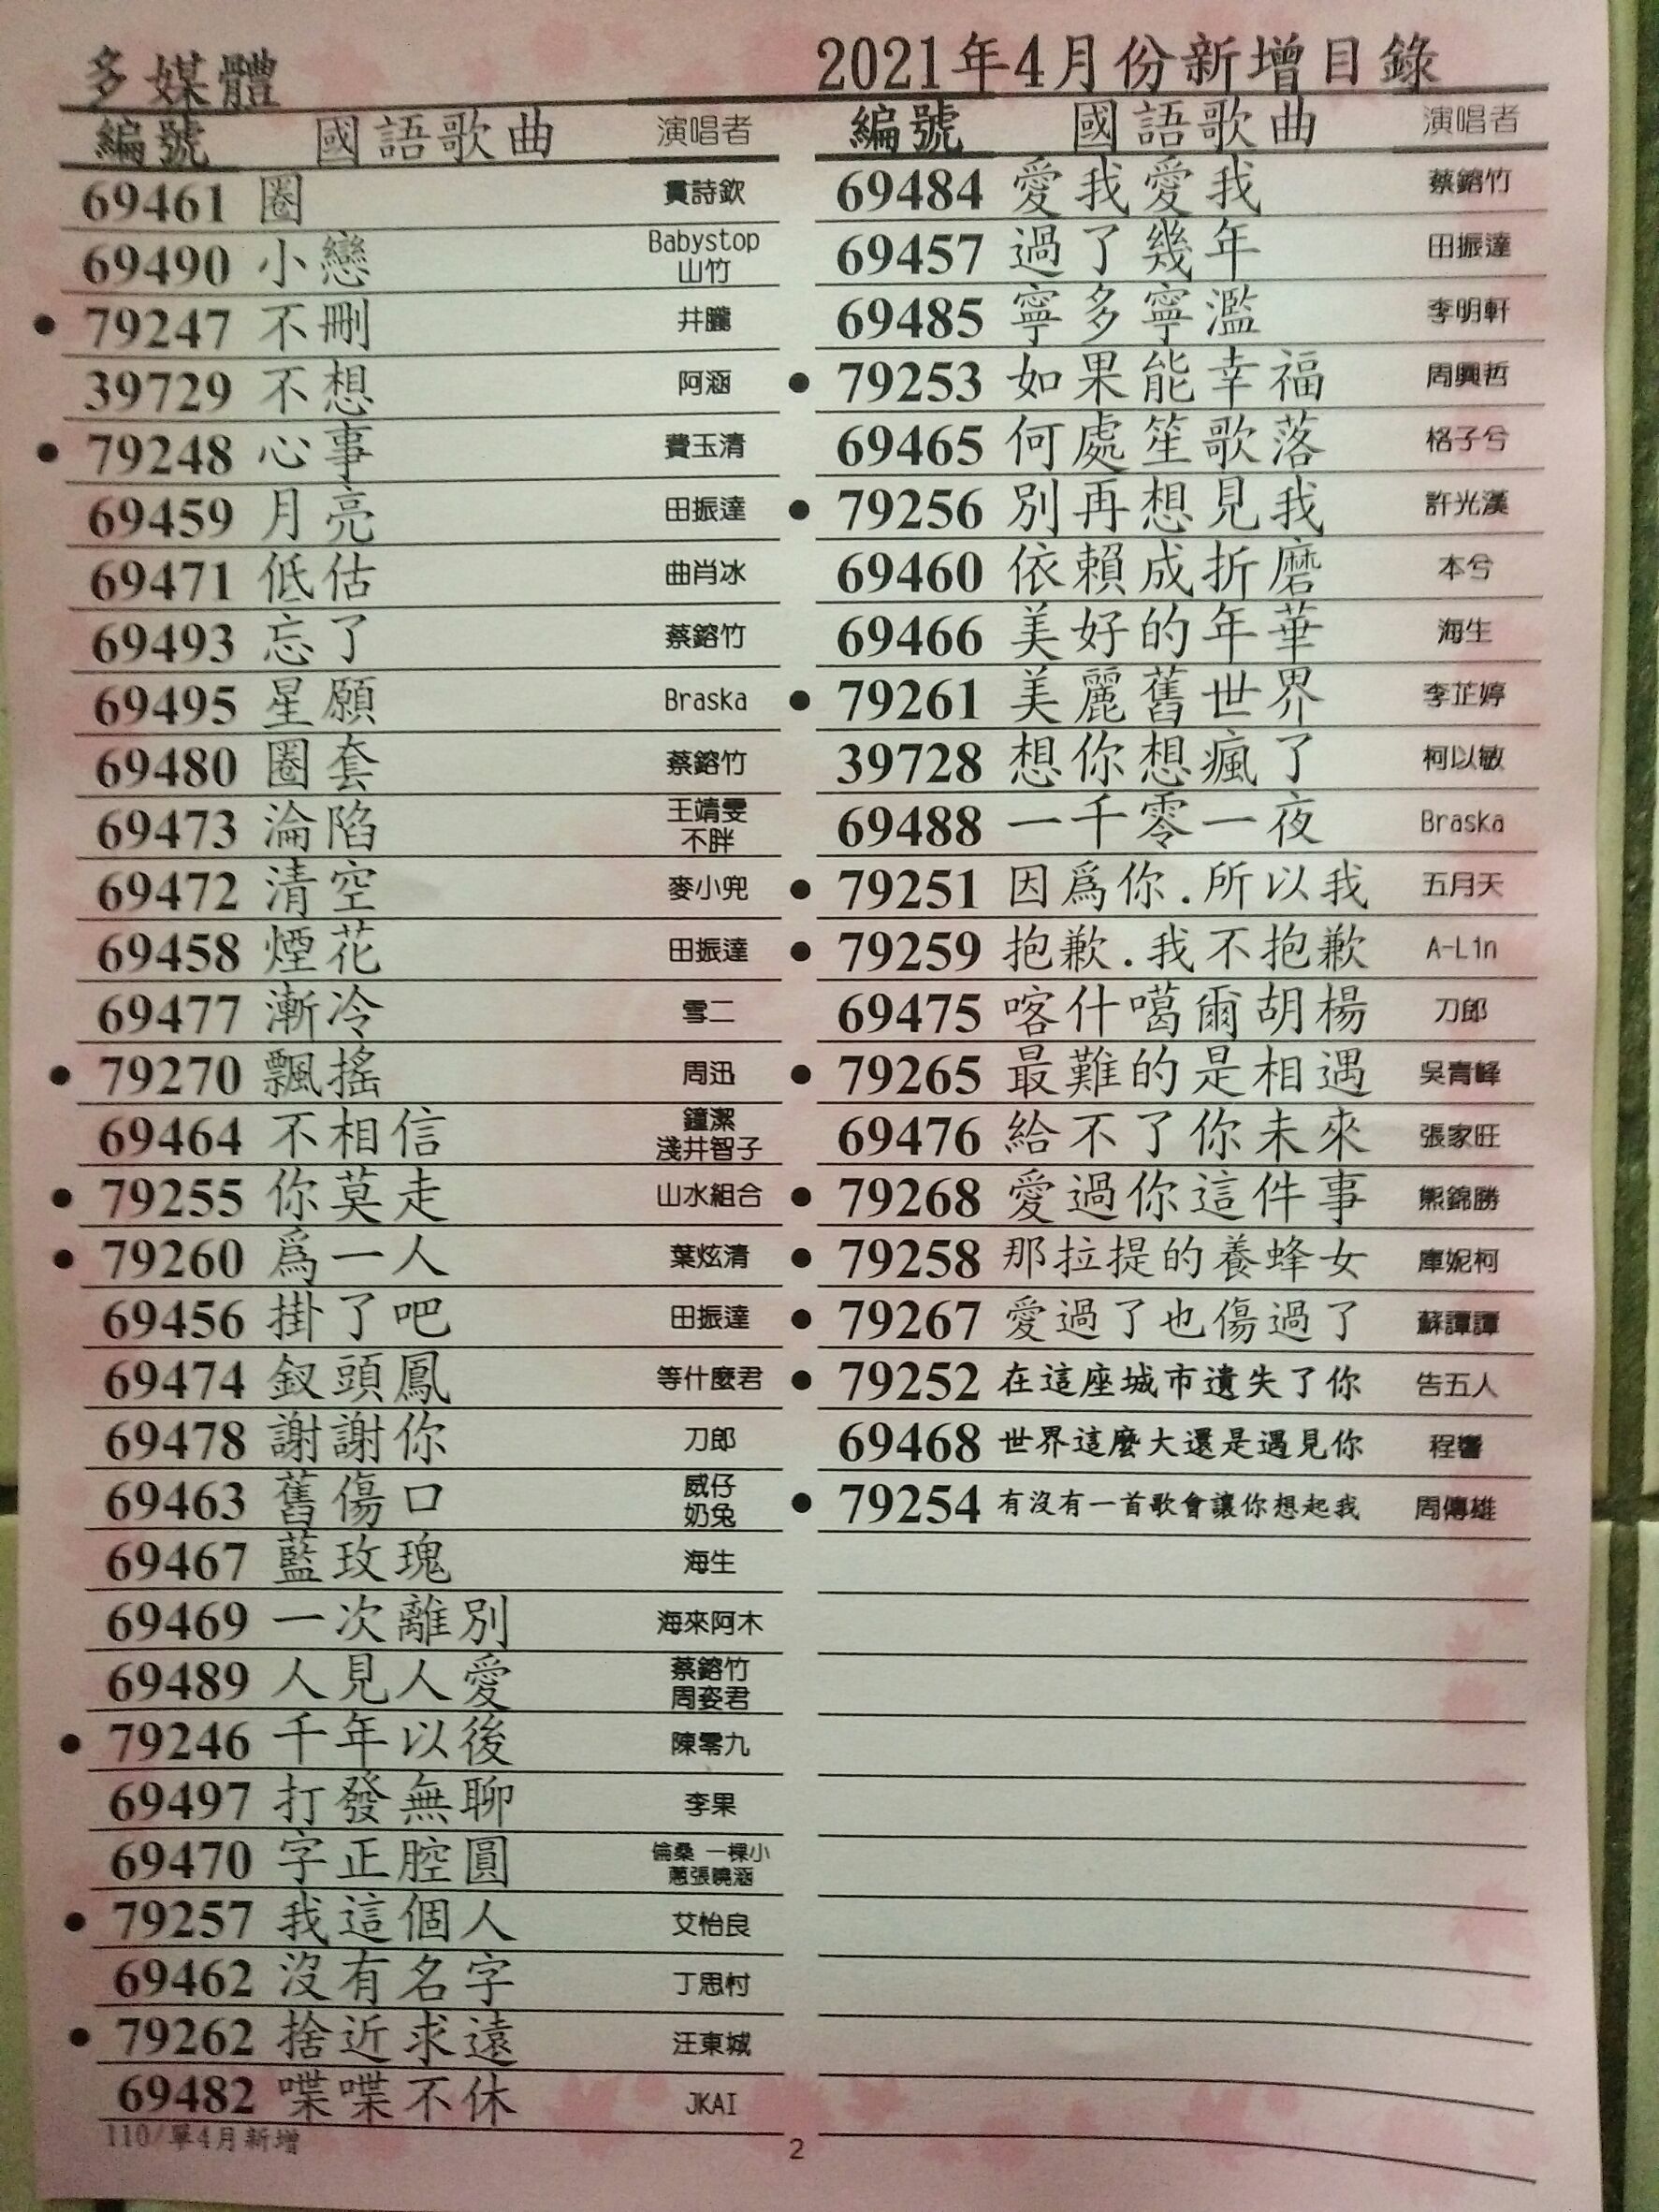 多媒體
2021年4月份新增目錄
編號 國語歌曲 演唱者
69461 圈 貫詩欽
69490 小戀 Babystop 山竹
● 79247 不刪 井朧
39729 不想 阿涵
● 79248 心事 費玉清
69459 月亮 田振達
69471 低估 曲肖冰
69493 忘了 蔡鎔竹
69495 星願 Braska
69480 圈套 蔡鎔竹
69473 淪陷 王靖雯 不胖
69472 清空 麥小兜
69458 煙花 田振達
69477 漸冷 雪二
● 79270 飄搖 周迅
69464 不相信 鐘潔 淺井智子
● 79255 你莫走 山水組合
● 79260 爲一人 葉炫清
69456 掛了吧 田振達
69474 釵頭鳳 等什麼君
69478 謝謝你 刀郎
69463 舊傷口 威仔 奶兔
69467 藍玫瑰 海生
69469 一次離別 海來阿木
69489 人見人愛 蔡鎔竹 周姿君
● 79246 千年以後 陳零九
69497 打發無聊 李果
69470 字正腔圓 倫桑 一棵小蔥張曉涵
● 79257 我這個人 艾怡良
69462 沒有名字 丁思村
● 79262 捨近求遠 汪東城
69482 喋喋不休 JKAI
編號 國語歌曲 演唱者
69484 愛我愛我 蔡鎔竹
69457 過了幾年 田振達
69485 寧多寧濫 李明軒
● 79253 如果能幸福 周興哲
69465 何處笙歌落 格子兮
● 79256 別再想見我 許光漢
69460 依賴成折磨 本兮
69466 美好的年華 海生
● 79261 美麗舊世界 李芷婷
39728 想你想瘋了 柯以敏
69488 一千零一夜 Braska
● 79251 因爲你.所以我 五月天
● 79259 抱歉.我不抱歉 A-Lin
69475 喀什噶爾胡楊 刀郎
● 79265 最難的是相遇 吳青峰
69476 給不了你未來 張家旺
● 79268 愛過你這件事 熊錦勝
● 79258 那拉提的養蜂女 庫妮柯
● 79267 愛過了也傷過了 蘇譚譚
● 79252 在這座城市遺失了你 告五人
69468 世界這麼大還是遇見你 程響
● 79254 有沒有一首歌會讓你想起我 周傳雄
110/單4月新增
2